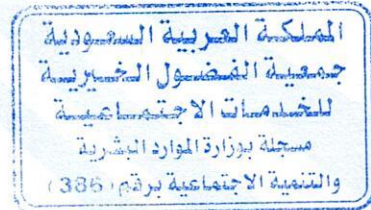 المملكة العربية السعودية
جمعية الفضول الخيرية
للخدمات الاجتماعية
مسجلة بوزارة الموارد البشرية
والتنمية الاجتماعية برقم (386)